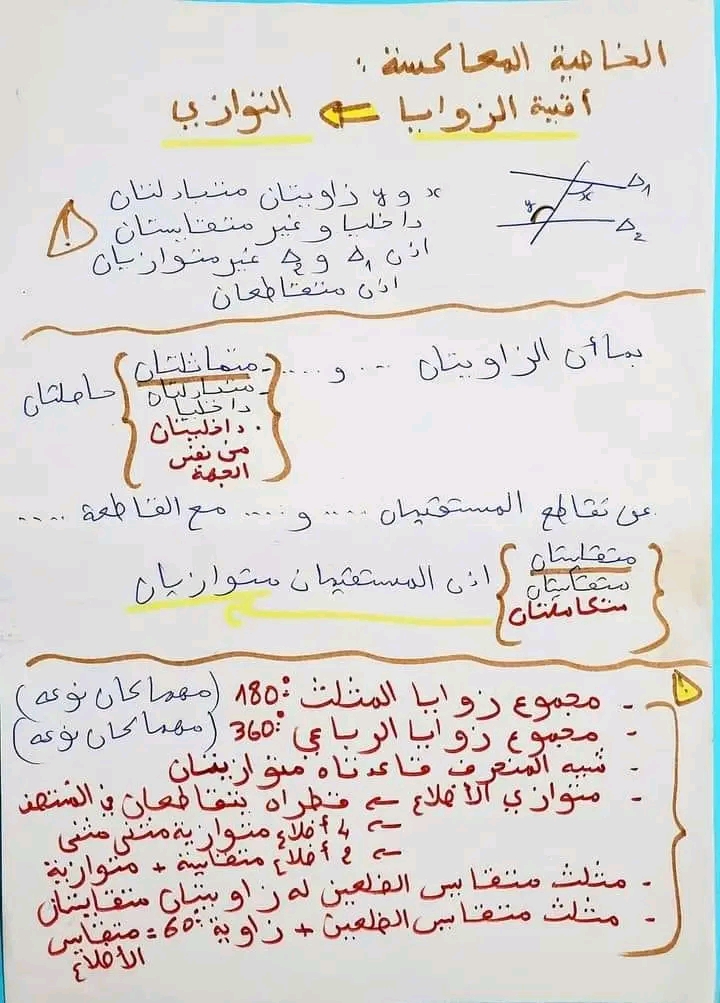 الخاصية المعاكسة :
أقيسة الزوايا ⇐ التوازي
x و y زاويتان متبادلتان
داخليا و غير متقايستان
اذن Δ1 و Δ2 غير متوازيان
اذن متقاطعان
x
y
Δ1
Δ2
!
بما أن الزاويتان .... و .... { - متماثلتان
- متبادلتان
داخليا
. داخليتان
من نفس
الجهة } حاصلتان
عن تقاطع المستقيمان .... و .... مع القاطعة ....
{ متقايستان
متقايستان
متكاملتان } اذن المستقيمان متوازيان
- مجموع زوايا المثلث : 180° (مهما كان نوعه)
- مجموع زوايا الرباعي : 360° (مهما كان نوعه)
- شبه المنحرف قاعدتاه متوازيتان
- متوازي الأضلاع ← قطراه يتقاطعان في المنتصف
← 4 أضلاع متوازية مثنى مثنى
← 2 أضلاع متقايسة + متوازية
- مثلث متقايس الضلعين له زاويتان متقايستان
- مثلث متقايس الضلعين + زاوية 60° = متقايس
الأضلاع